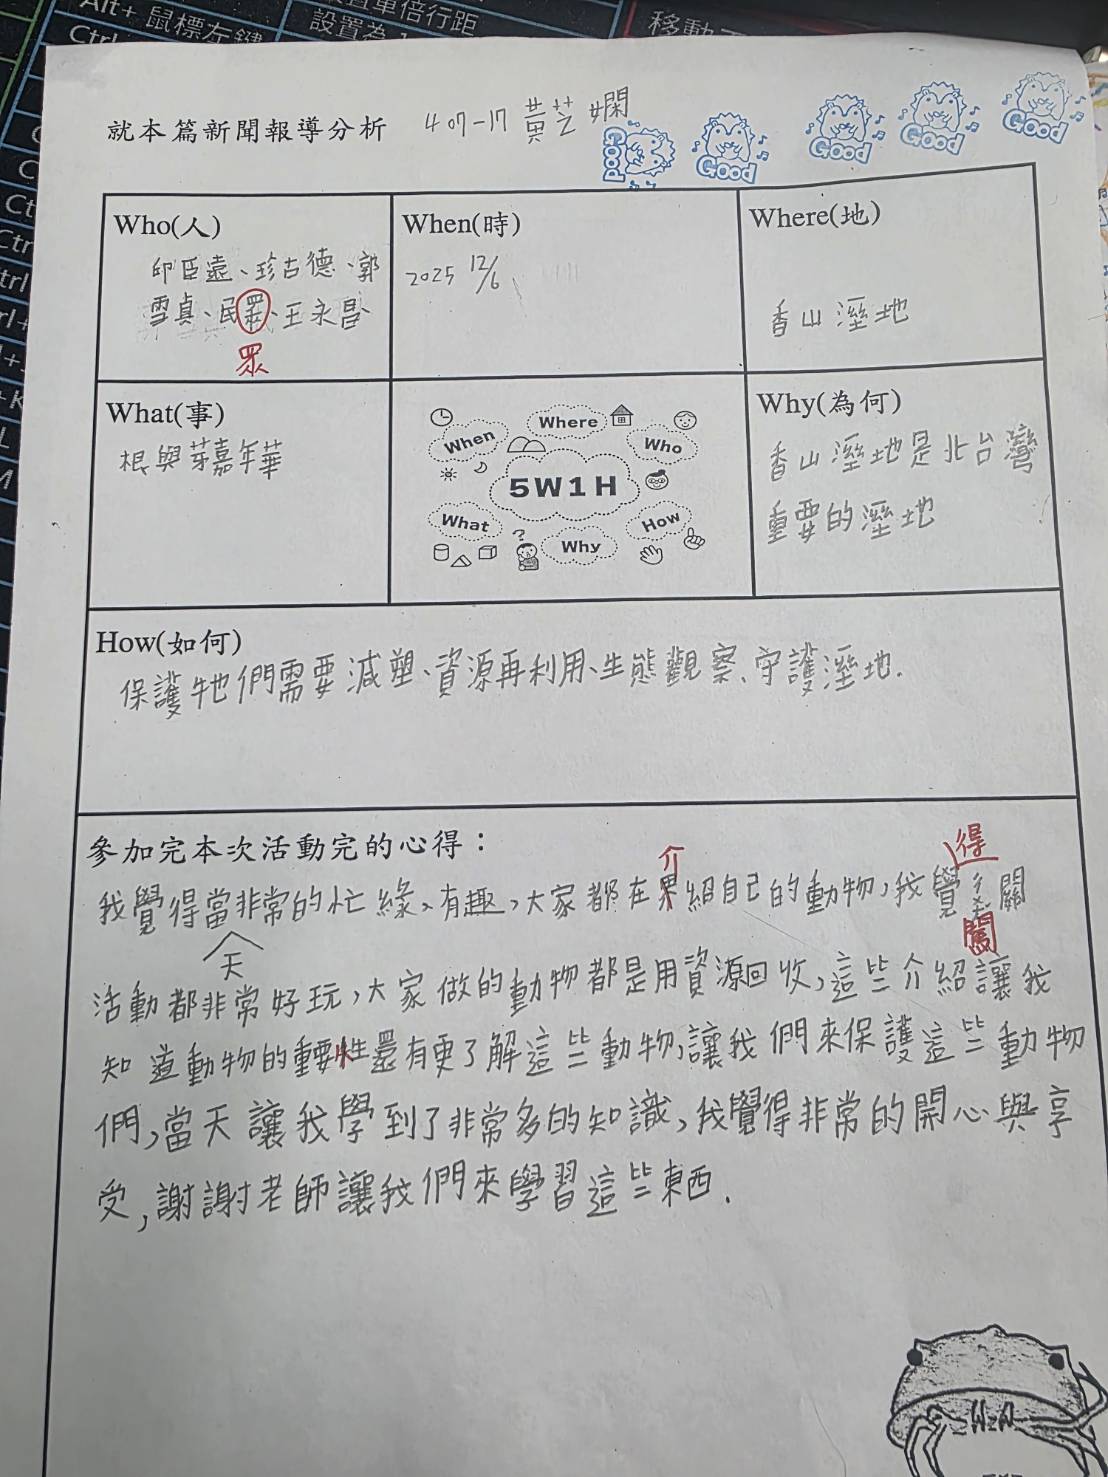 Alt+ 鼠標左鍵
設置單倍行距
設置為1
移動
Ctrl
就本篇新聞報導分析 407-17 黃芝嫻
Good Good Good Good Good
Who(人)
邱臣遠、珍古德、郭
雪貞、民眾、王永昌
眾
When(時)
2025 12/6
Where(地)
香山溼地
What(事)
根與芽嘉年華
When Where Who
5W1H
What Why How
?
Why(為何)
香山溼地是北台灣
重要的溼地
How(如何)
保護牠們需要減塑、資源再利用、生態觀察、守護溼地.
參加完本次活動完的心得：
介 得
我覺得當非常的忙綠、有趣,大家都在界紹自己的動物,我覺 關
天 闖
活動都非常好玩,大家做的動物都是用資源回收,這些介紹讓我
知道動物的重要性還有更了解這些動物,讓我們來保護這些動物
們,當天讓我學到了非常多的知識,我覺得非常的開心與享
受,謝謝老師讓我們來學習這些東西.